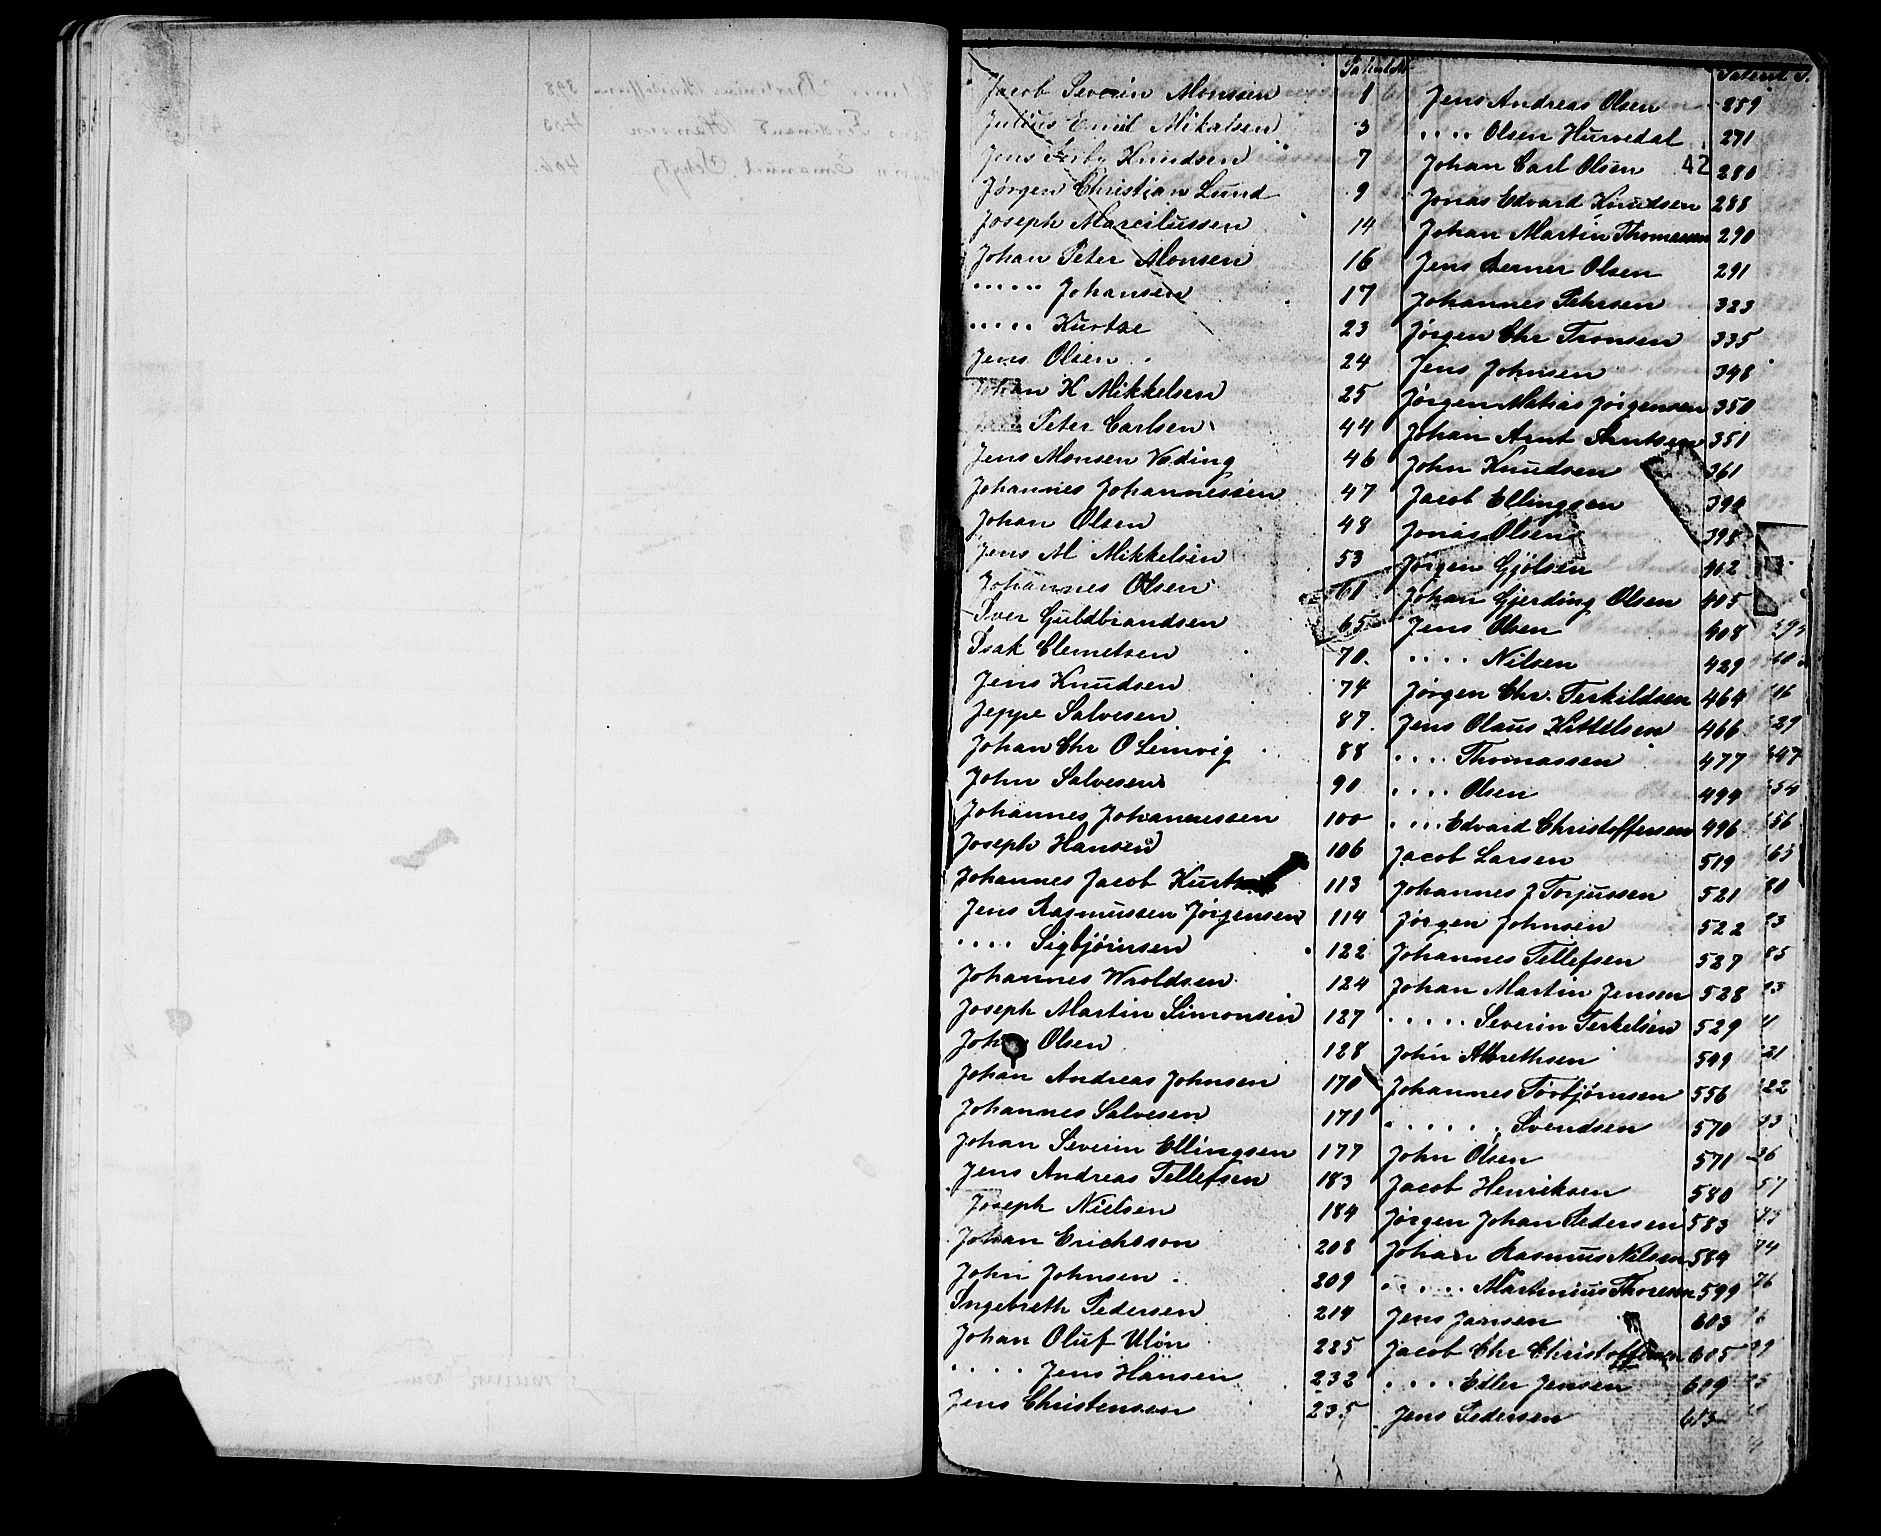 Jacob Severin Monssen 1
Julius Emil Mikalsen 3
Jens Knudsen 7
Jørgen Christian Lund 9
Joseph Marcilussen 14
Johan Peter Monsen 16
" " " Johansen 17
" " " Kurtze 23
Jens Olsen 24
Johan K Mikkelsen 25
Peter Carlsen 44
Jens Monsen Veding 46
Johannes Johannessen 47
Johan Olsen 48
Jens M Mikkelsen 53
Johannes Olsen 61
Iver Guldbrandsen 65
Isak Clemetsen 70
Jens Knudsen 74
Jeppe Salvesen 87
Johan Chr O Leinvig 88
John Salvesen 90
Johannes Johannessen 100
Joseph Hansen 106
Johannes Jacob 113
Jens Rasmussen Jørgensen 114
" " " Sigbjørnsen 122
Johannes Wroldsen 124
Joseph Martin Simonsen 127
John Olsen 128
Johan Andreas Johnsen 170
Johannes Salvesen 171
Johan Severin Ellingsen 177
Jens Andreas Tellefsen 183
Joseph Nielsen 184
Johan Ericksson 208
John Johnsen 209
Ingebreth Pedersen 214
Johan Oluf Uløn 225
" " " Jens Hansen 232
Jens Christensen 235
Patent S.
Jens Andreas Olsen 259
" " " Olsen Hurvedal 271
42
Johan Carl Olsen 280
Jonas Edvard Knudsen 288
Johan Martin Thomassen 290
Jens Berner Olsen 291
Johannes Pehrsen 323
Jørgen Chr Tronsen 335
Jens Johnsen 348
Jørgen Matias Jørgensen 350
Johan Arnt Arntsen 351
John Knudsen 361
Jacob Ellingsen 392
Jonas Olsen 398
Jørgen Gjølsen 402
Johan Gjerding Olsen 405
Jens Olsen 408
" " " Nilsen 429
Jørgen Chr. Terkildsen 464
Jens Olaus Kittelsen 466
" " " Thomassen 477
" " " Olsen 494
" " " Edvard Christoffersen 496
Jacob Larsen 519
Johannes J Torjussen 521
Jørgen Johnsen 522
Johannes Tellefsen 527
Johan Martin Jensen 528
" " " Severin Terkelsen 529
John Albrethsen 549
Johannes Torbjørnsen 556
" " " Svendsen 570
John Olsen 571
Jacob Henriksen 580
Jørgen Johan Pedersen 583
Johan Rasmus Nilsen 584
" " " Martinius Thoresen 599
Jens Jansen 603
Jacob Chr Christoffersen 605
" " " Edler Jensen 609
Jens Pedersen 613